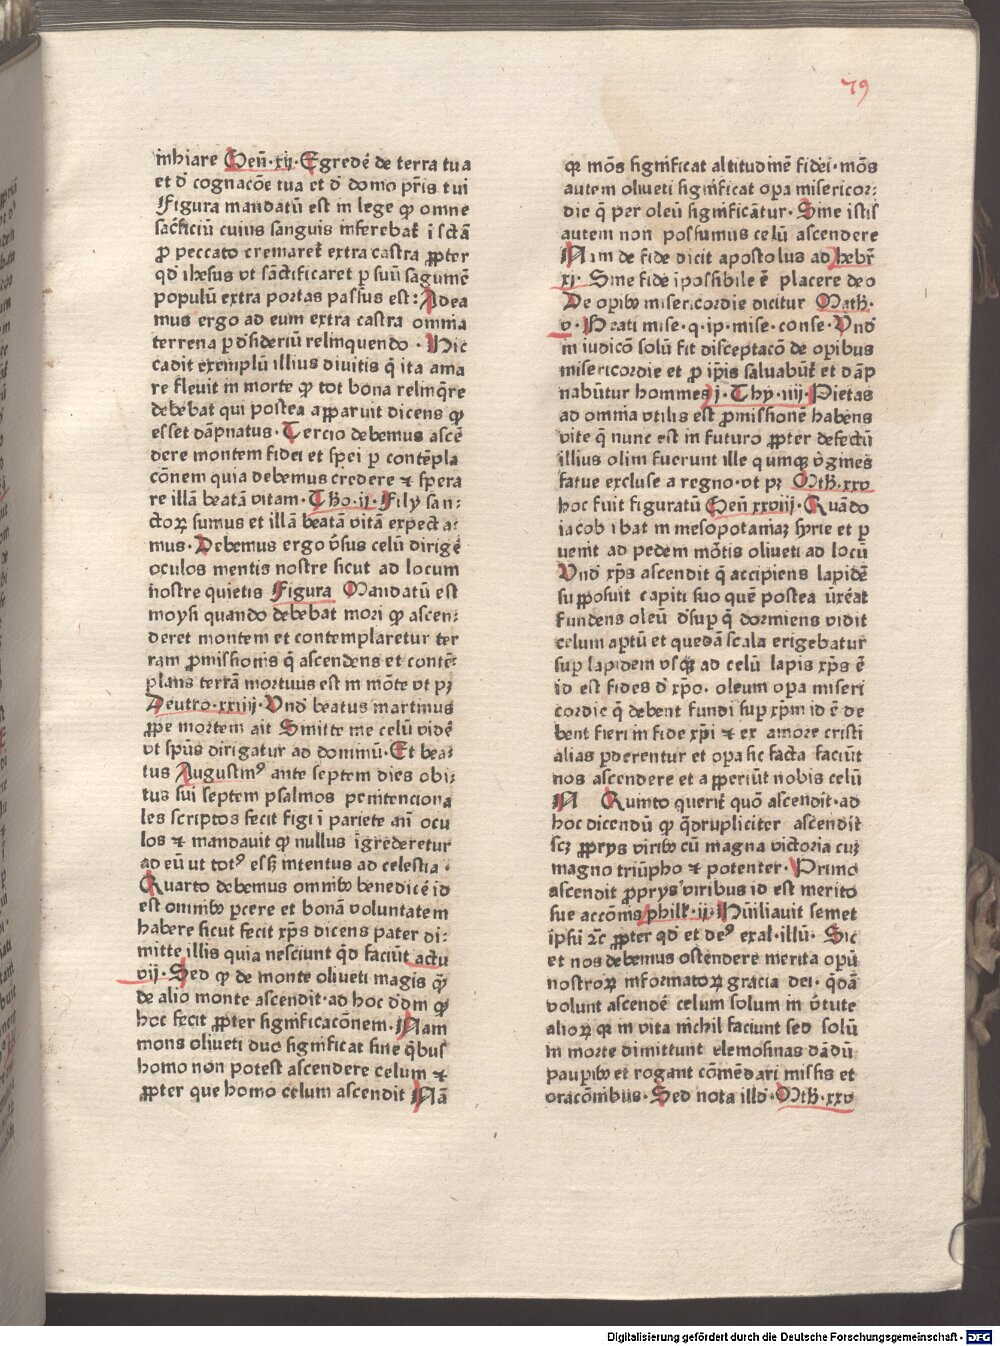 79
inhiare Gen̄·xij·Egredē de terra tua
et d̄ cognacōe tua et d̄ domo pr̄is tui
Figura mandatū est in lege ꝙ omne
sac̄ficiū cuius sanguis inferebat̄ ī sctā
ꝓ peccato cremaret̄ extra castra ꝓpter
qd̄ ihesus vt sāctificaret p̄ suū sagumē
populū extra portas passus est: Adea
mus ergo ad eum extra castra omnia
terrena ꝑ dsideriū relinquendo · Hic
cadit exemplū illius diuitis q̄ ita ama
re fleuit in morte ꝙ tot bona relinq̄re
debebat qui postea apparuit dicens ꝙ
esset dāpnatus· Tercio debemus ascē
dere montem fidei et spei ꝑ contēpla
cōnem quia debemus credere ⁊ spera
re illā beatā vitam· Tho·ij· Filij san⸗
ctoꝝ sumus et illā beatā vitā expecta⸗
mus· Debemus ergo v̄sus celū dirigē
oculos mentis nostre sicut ad locum
nostre quietis Figura Mandatū est
moysi quando debebat mori ꝙ ascen⸗
deret montem et contemplaretur ter
ram ꝓmissionis q̄ ascendens et contē⸗
plans terrā mortuus est in mōte vt pꝫ
Deutro·xxiiij· Vnd̄ beatus martinus
ꝓpe mortem ait Smitte me celū vidē
vt spūs dirigatur ad dominū· Et bea⸗
tus Augustinꝰ ante septem dies obi⸗
tus sui septem psalmos penitenciona
les scriptos fecit figi ī pariete an̄ ocu
los ⁊ mandauit ꝙ nullus īgrederetur
ad eū ut totꝰ esꝫ intentus ad celestia ·
Quarto debemus omnibꝰ benedicē id
est omnibꝰ ꝑcere et bonā voluntatem
habere sicut fecit xp̄s dicens pater di⸗
mitte illis quia nesciunt qd̄ faciūt actu
vij· Sed ꝙ de monte oliueti magis q̄ꝫ
de alio monte ascendit· ad hoc d̄dm ꝙ
hoc fecit ꝓpter significacōnem· Nam
mons oliueti duo significat sine q̄bus
homo non potest ascendere celum ⁊
ꝓpter que homo celum ascendit Nā
qꝛ mōs significat altitudinē fidei· mōs
autem oliueti significat opa misericor⸗
die q̄ per oleū significātur· Sine istis
autem non possumus celū ascendere
Nam de fide dicit apostolus ad hebr̄
xj· Sine fide īpossibile ē placere deo
De opibꝰ misericordie dicitur Math̄·
v· Beati mise·q·ip·mise·conse· Vnd̄
in iudicō solū fit disceptacō de opibus
misericordie et ꝓ ip̄is saluabūt̄ et dāp
nabūtur homines j· Thy·iiij· Pietas
ad omnia vtilis est ꝓmissionē habens
vite q̄ nunc est in futuro ꝓpter defectū
illius olim fuerunt ille qumqꝫ v̄gines
fatue excluse a regno· vt pꝫ Mth̄·xxv
hoc fuit figuratū Gen̄ xxviij· Quādo
iacob ibat in mesopotamiaꝫ syrie et ꝑ
uenit ad pedem mōtis oliueti ad locū
Vnd̄ xp̄s ascendit q̄ accipiens lapidē
supposuit capiti suo quē postea ūxēat
fundens oleū d̄sup q̄ dormiens vidit
celum aptū et quedā scala erigebatur
sup lapidem vsqꝫ ad celū lapis xp̄s ē
id est fides d̄ xp̄o· oleum opa miseri
cordie q̄ debent fundi sup xp̄m id ē de
bent fieri in fide xp̄i ⁊ ex amore cristi
alias ꝑderentur et opa sic facta faciūt
nos ascendere et apperiūt nobis celū
N Quinto querit̄ quō ascendit· ad
hoc dicendū ꝙ q̄drupliciter ascendit
scꝫ ꝓprijs viribꝰ cū magna victoria cuꝫ
magno triūpho ⁊ potenter· Primo
ascendit ꝓprijs viribus id est merito
sue accōnis philip̄·ij· Hūiliauit semet
ipsū ⁊c̄ ꝓpter qd̄ et deꝰ exal·illū· Sic
et nos debemus ostendere merita opū
nostroꝝ informatoꝝ gracia dei· qd̄ā
volunt ascendē celum solum in v̄tute
alioꝝ qꝛ in vita nichil faciunt sed solū
in morte dimittunt elemosinas dādū
paupibꝰ et rogant cōmēdari missis et
oracōnibus· Sed nota illd̄· Mth̄·xxv
Digitalisierung gefördert durch die Deutsche Forschungsgemeinschaft · DFG